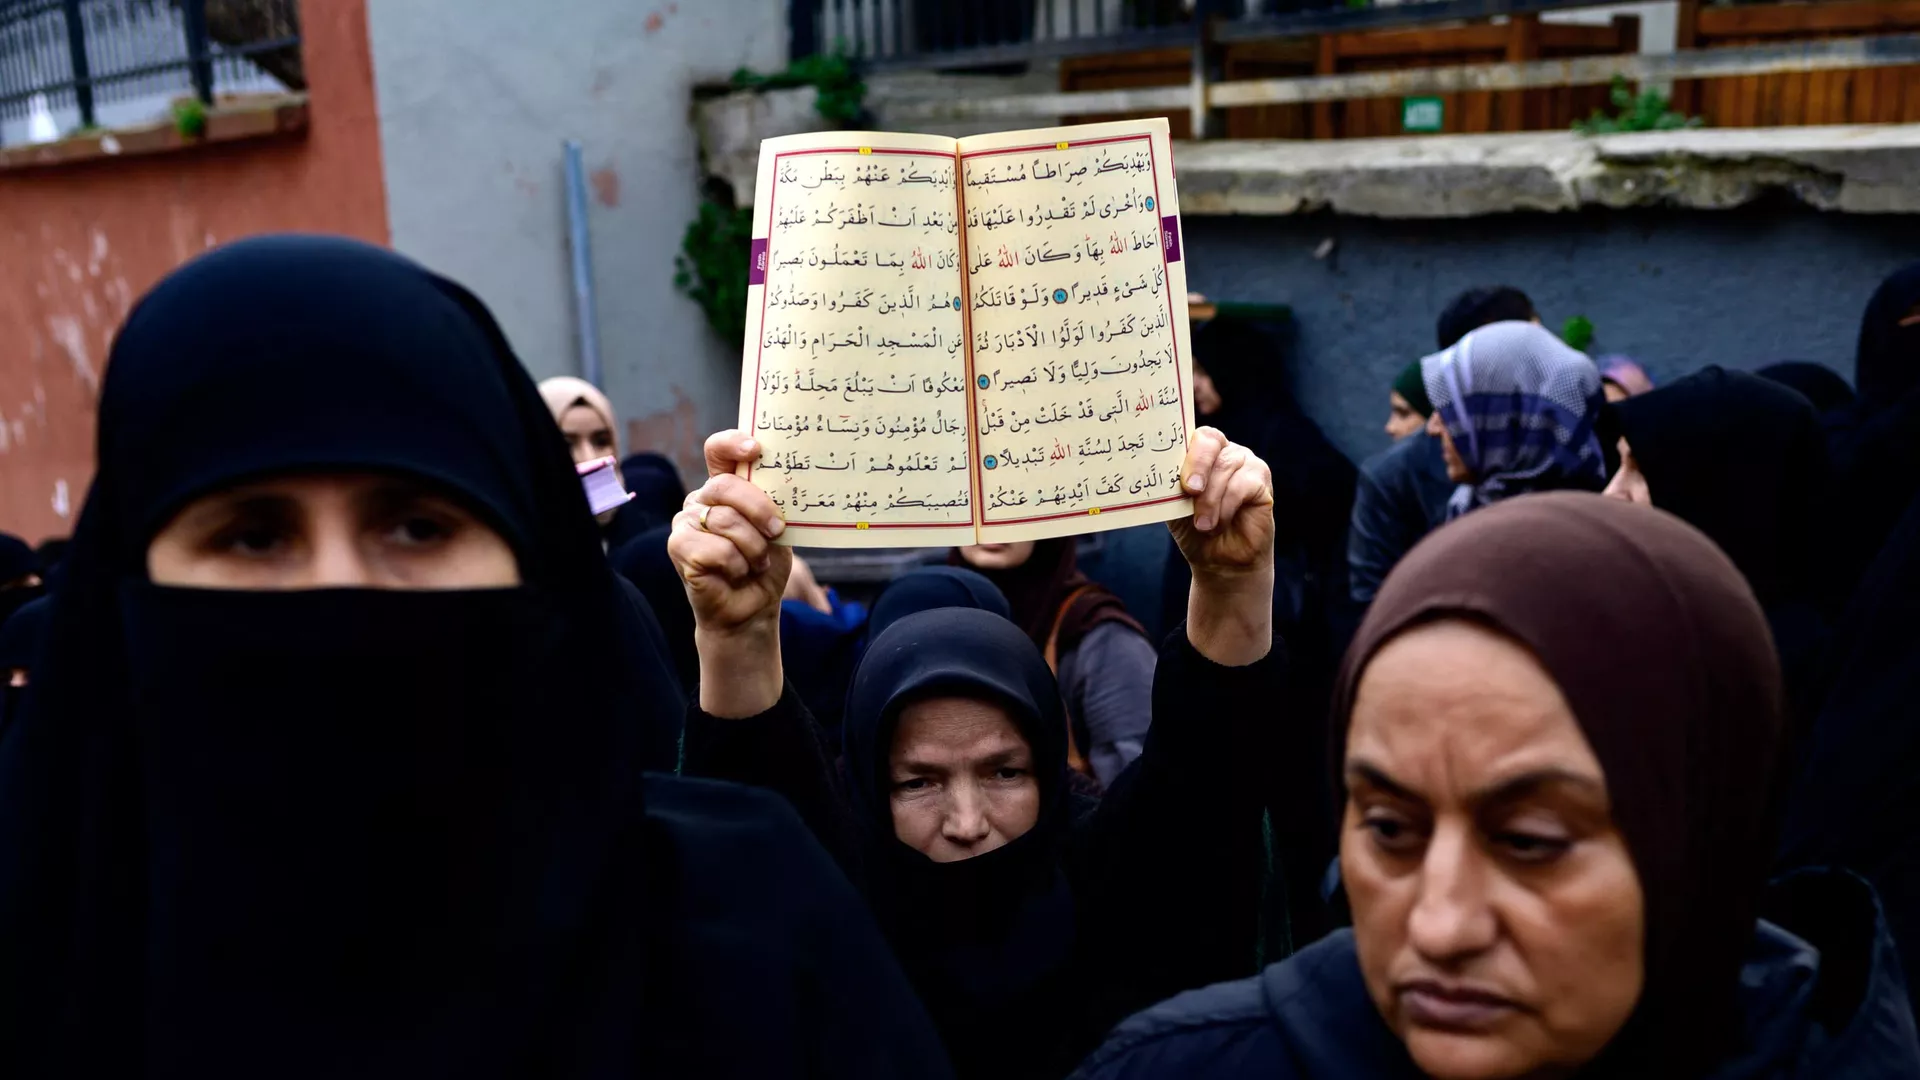 وَيَهْدِيَكُمْ صِرَاطًا مُسْتَق۪يمًاۙ
وَاُخْرٰى لَمْ تَقْدِرُوا عَلَيْهَا قَدْ
اَحَاطَ اللّٰهُ بِهَاۜ وَكَانَ اللّٰهُ عَلٰى
كُلِّ شَيْءٍ قَد۪يرًا وَلَوْ قَاتَلَكُمُ
الَّذ۪ينَ كَفَرُوا لَوَلَّوُا الْاَدْبَارَ ثُمَّ
لَا يَجِدُونَ وَلِيًّا وَلَا نَص۪يرًا
سُنَّةَ اللّٰهِ الَّت۪ي قَدْ خَلَتْ مِنْ قَبْلُۚ
وَلَنْ تَجِدَ لِسُنَّةِ اللّٰهِ تَبْد۪يلًا
هُوَ الَّذ۪ي كَفَّ اَيْدِيَهُمْ عَنْكُمْ
وَاَيْدِيَكُمْ عَنْهُمْ بِبَطْنِ مَكَّةَ
مِنْ بَعْدِ اَنْ اَظْفَرَكُمْ عَلَيْهِمْ
وَكَانَ اللّٰهُ بِمَا تَعْمَلُونَ بَص۪يرًا
هُمُ الَّذ۪ينَ كَفَرُوا وَصَدُّوكُمْ
عَنِ الْمَسْجِدِ الْحَرَامِ وَالْهَدْيَ
مَعْكُوفًا اَنْ يَبْلُغَ مَحِلَّهُۜ وَلَوْلَا
رِجَالٌ مُؤْمِنُونَ وَنِسَٓاءٌ مُؤْمِنَاتٌ
لَمْ تَعْلَمُوهُمْ اَنْ تَطَؤُ۫هُمْ
فَتُص۪يبَكُمْ مِنْهُمْ مَعَرَّةٌ